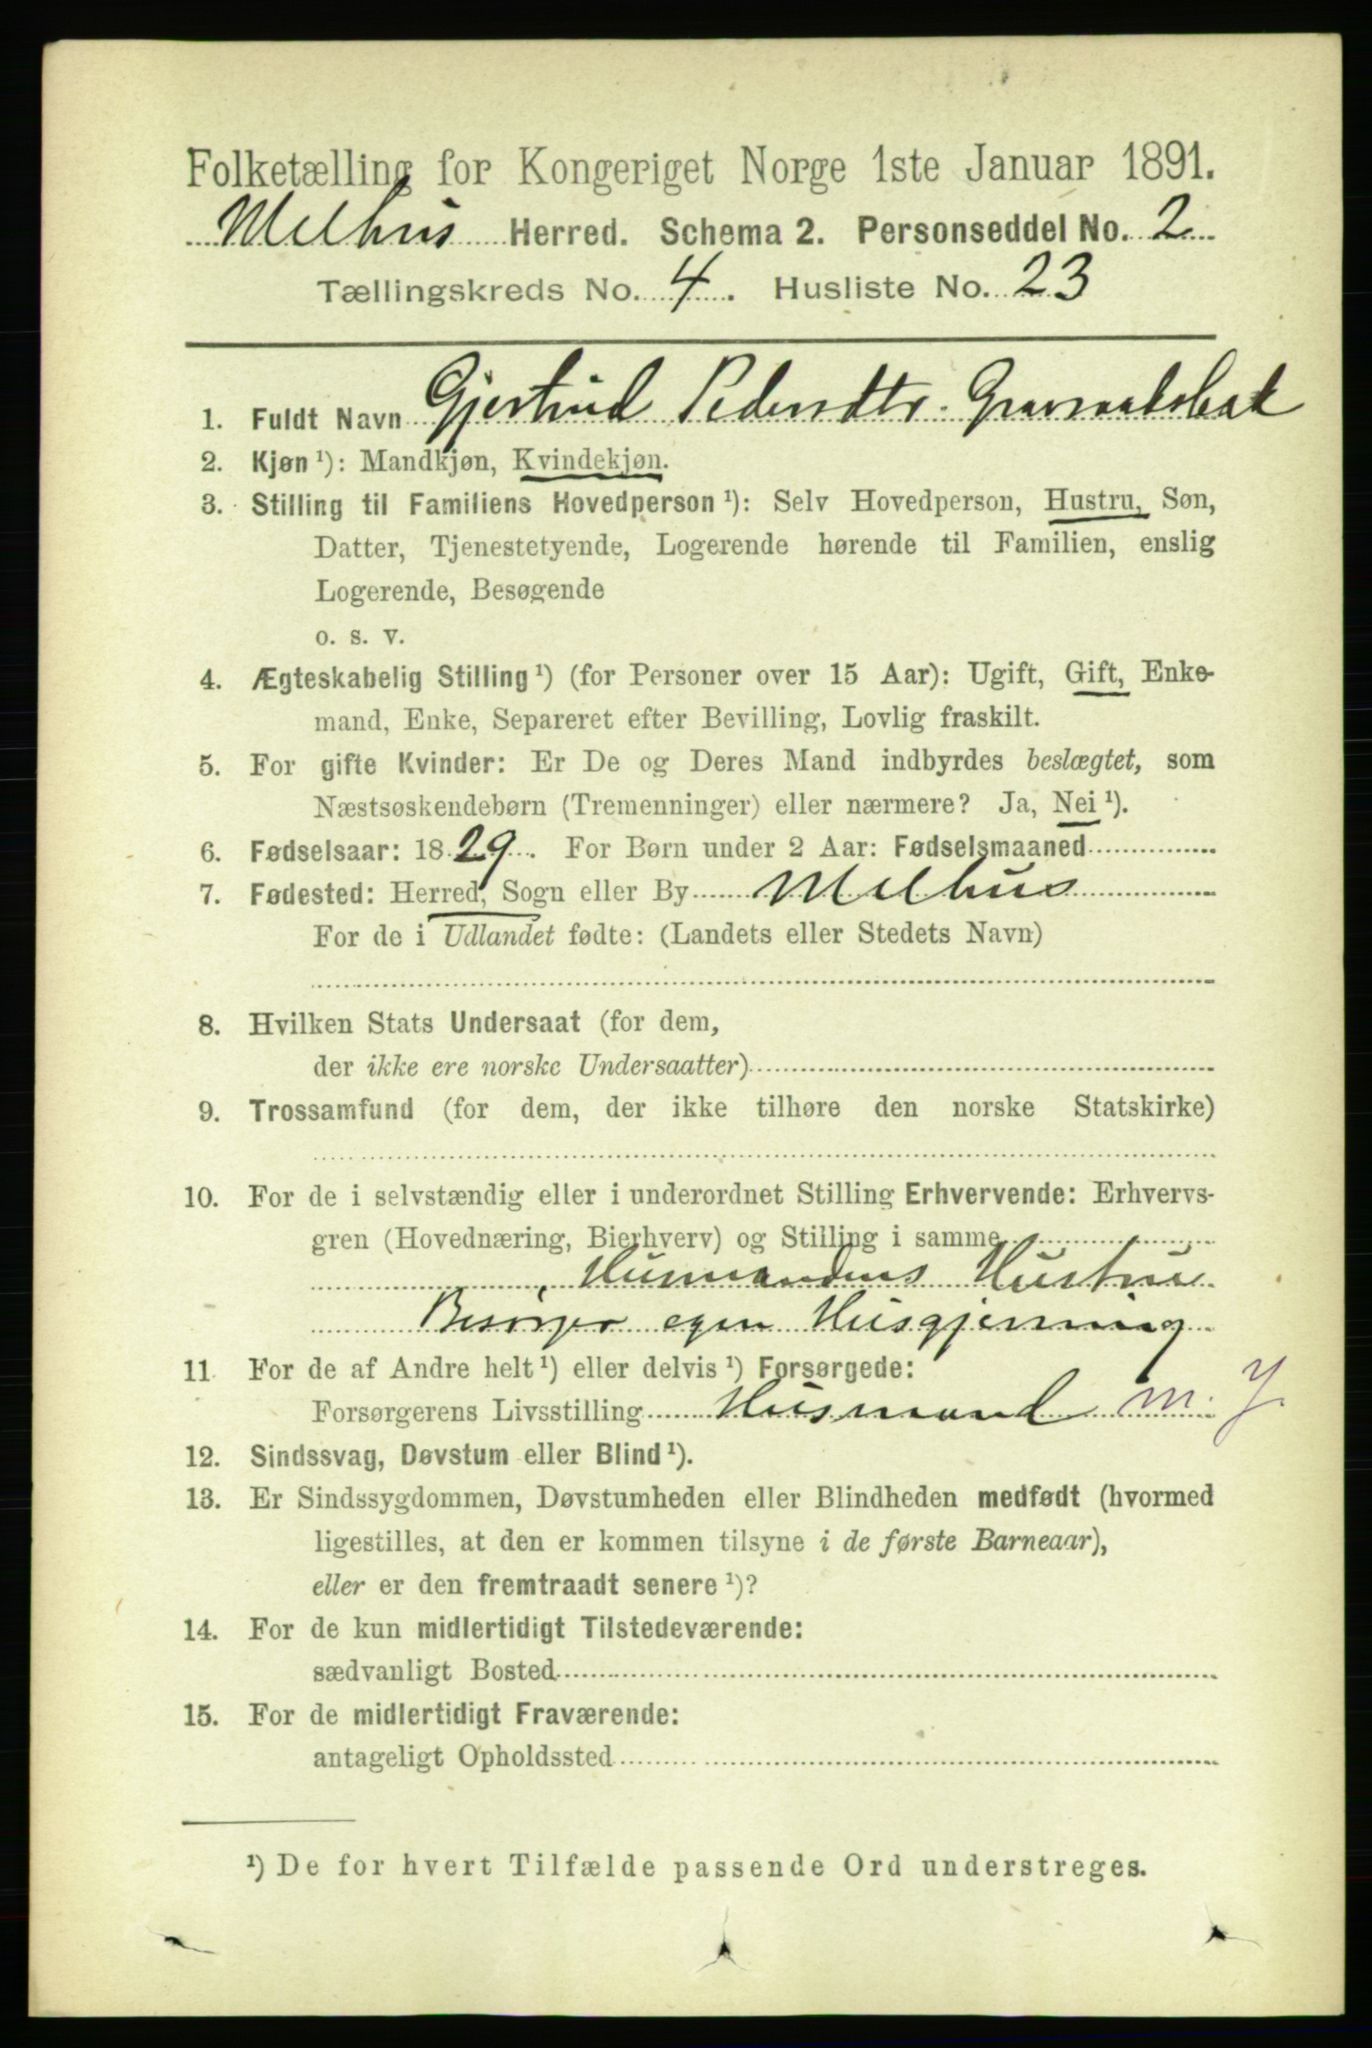 Folketælling for Kongeriget Norge 1ste Januar 1891.
Melhus Herred. Schema 2. Personseddel No. 2
Tællingskreds No. 4. Husliste No. 23
1. Fuldt Navn Gjertrud Pedersdtr.
2. Kjøn ¹): Mandkjøn, Kvindekjøn.
3. Stilling til Familiens Hovedperson ¹): Selv Hovedperson, Hustru, Søn,
Datter, Tjenestetyende, Logerende hørende til Familien, enslig
Logerende, Besøgende
o. s. v.
4. Ægteskabelig Stilling ¹) (for Personer over 15 Aar): Ugift, Gift, Enke-
mand, Enke, Separeret efter Bevilling, Lovlig fraskilt.
5. For gifte Kvinder: Er De og Deres Mand indbyrdes beslægtet, som
Næstsøskendebørn (Tremenninger) eller nærmere? Ja, Nei ¹).
6. Fødselsaar: 1829. For Børn under 2 Aar: Fødselsmaaned
7. Fødested: Herred, Sogn eller By Melhus
For de i Udlandet fødte: (Landets eller Stedets Navn)
8. Hvilken Stats Undersaat (for dem,
der ikke ere norske Undersaatter)
9. Trossamfund (for dem, der ikke tilhøre den norske Statskirke)
10. For de i selvstændig eller i underordnet Stilling Erhvervende: Erhvervs-
gren (Hovednæring, Bierhverv) og Stilling i samme
Husmandens Hustrue
Besørger egen Husgjerning
11. For de af Andre helt ¹) eller delvis ¹) Forsørgede:
Forsørgerens Livsstilling Husmand m. J.
12. Sindssvag, Døvstum eller Blind ¹).
13. Er Sindssygdommen, Døvstumheden eller Blindheden medfødt (hvormed
ligestilles, at den er kommen tilsyne i de første Barneaar),
eller er den fremtraadt senere ¹)?
14. For de kun midlertidigt Tilstedeværende:
sædvanligt Bosted
15. For de midlertidigt Fraværende:
antageligt Opholdssted
¹) De for hvert Tilfælde passende Ord understreges.